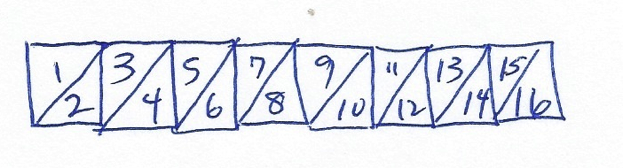 1/2 3/4 5/6 7/8 9/10 11/12 13/14 15/16